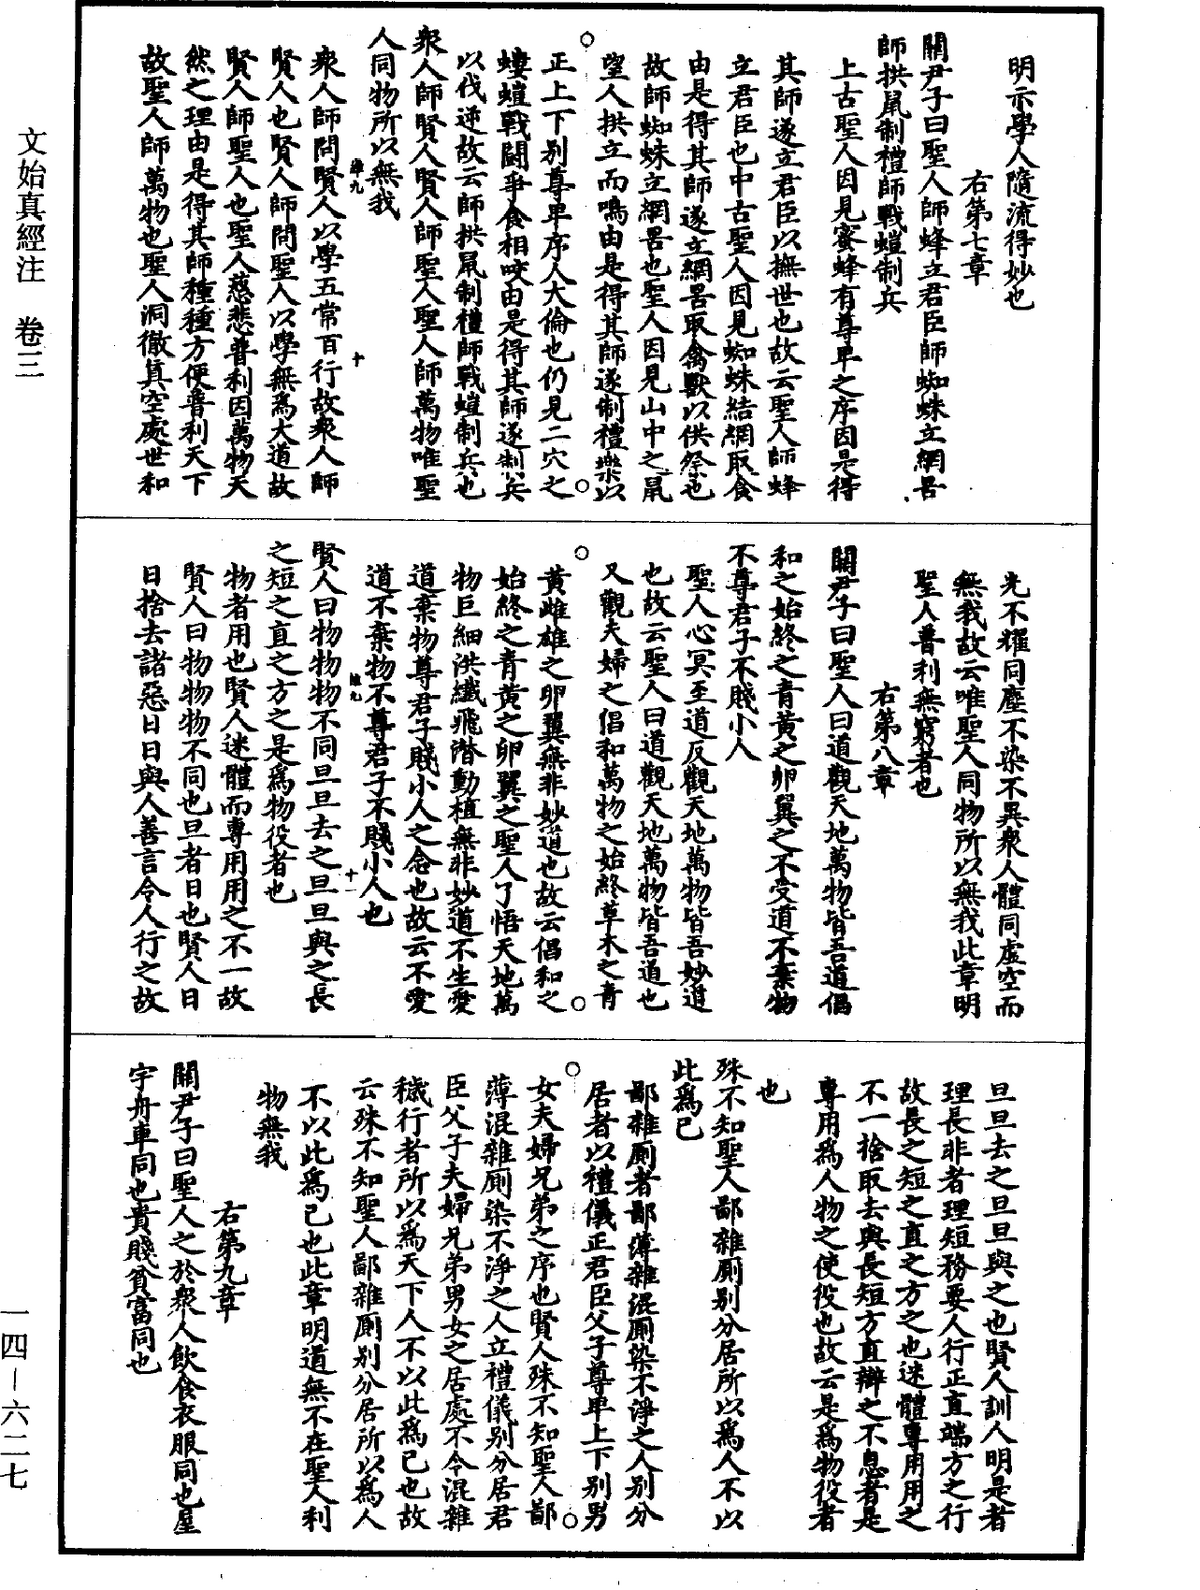 明示學人隨流得妙也
右第七章
關尹子曰聖人師蜂立君臣師蜘蛛立網罟
師拱鼠制禮師戰螘制兵
上古聖人因見蜜蜂有尊卑之序因是得
其師遂立君臣以撫世也故云聖人師蜂
立君臣也中古聖人因見蜘蛛結網取食
由是得其師遂立網罟取禽獸以供祭也
故師蜘蛛立網罟也聖人因見山中之鼠
望人拱立而鳴由是得其師遂制禮樂以
正上下別尊卑序人大倫也仍見二穴之
螻螘戰鬪爭食相咬由是得其師遂制兵
以伐逆故云師拱鼠制禮師戰螘制兵也
衆人師賢人賢人師聖人聖人師萬物唯聖
人同物所以無我
衆人師問賢人以學五常百行故衆人師
賢人也賢人師問聖人以學無爲大道故
賢人師聖人也聖人慈悲普利因萬物天
然之理由是得其師種種方便普利天下
故聖人師萬物也聖人洞徹真空處世和
十
光不耀同塵不染不異衆人體同虛空而
無我故云唯聖人同物所以無我此章明
聖人普利無窮者也
右第八章
關尹子曰聖人曰道觀天地萬物皆吾道倡
和之始終之青黃之卵翼之不受道不棄物
不尊君子不賤小人
聖人心冥至道反觀天地萬物皆吾妙道
也故云聖人曰道觀天地萬物皆吾道也
又觀夫婦之倡和萬物之始終草木之青
黃雌雄之卵翼無非妙道也故云倡和之
始終之青黃之卵翼之聖人了悟天地萬
物巨細洪纖飛潛動植無非妙道不生愛
道棄物尊君子賤小人之念也故云不愛
道不棄物不尊君子不賤小人也
十一
賢人曰物物物不同旦旦去之旦旦與之長
之短之直之方之是爲物役者也
物者用也賢人迷體而專用用之不一故
賢人曰物物物不同也旦者日也賢人日
日捨去諸惡日日與人善言令人行之故
旦旦去之旦旦與之也賢人訓人明是者
理長非者理短務要人行正直端方之行
故長之短之直之方之也迷體專用用之
不一捨取去與長短方直辯之不息者是
專用爲人物之使役也故云是爲物役者
也
殊不知聖人鄙雜廁別分居所以爲人不以
此爲己
鄙雜廁者鄙薄雜混廁染不淨之人別分
居者以禮儀正君臣父子尊卑上下別男
女夫婦兄弟之序也賢人殊不知聖人鄙
薄混雜廁染不淨之人立禮儀別分居君
臣父子夫婦兄弟男女之居處不令混雜
穢行者所以爲天下人不以此爲己也故
云殊不知聖人鄙雜廁別分居所以爲人
不以此爲己也此章明道無不在聖人利
物無我
右第九章
關尹子曰聖人之於衆人飲食衣服同也屋
宇舟車同也貴賤貧富同也
文始真經注　卷三
一四－六二七